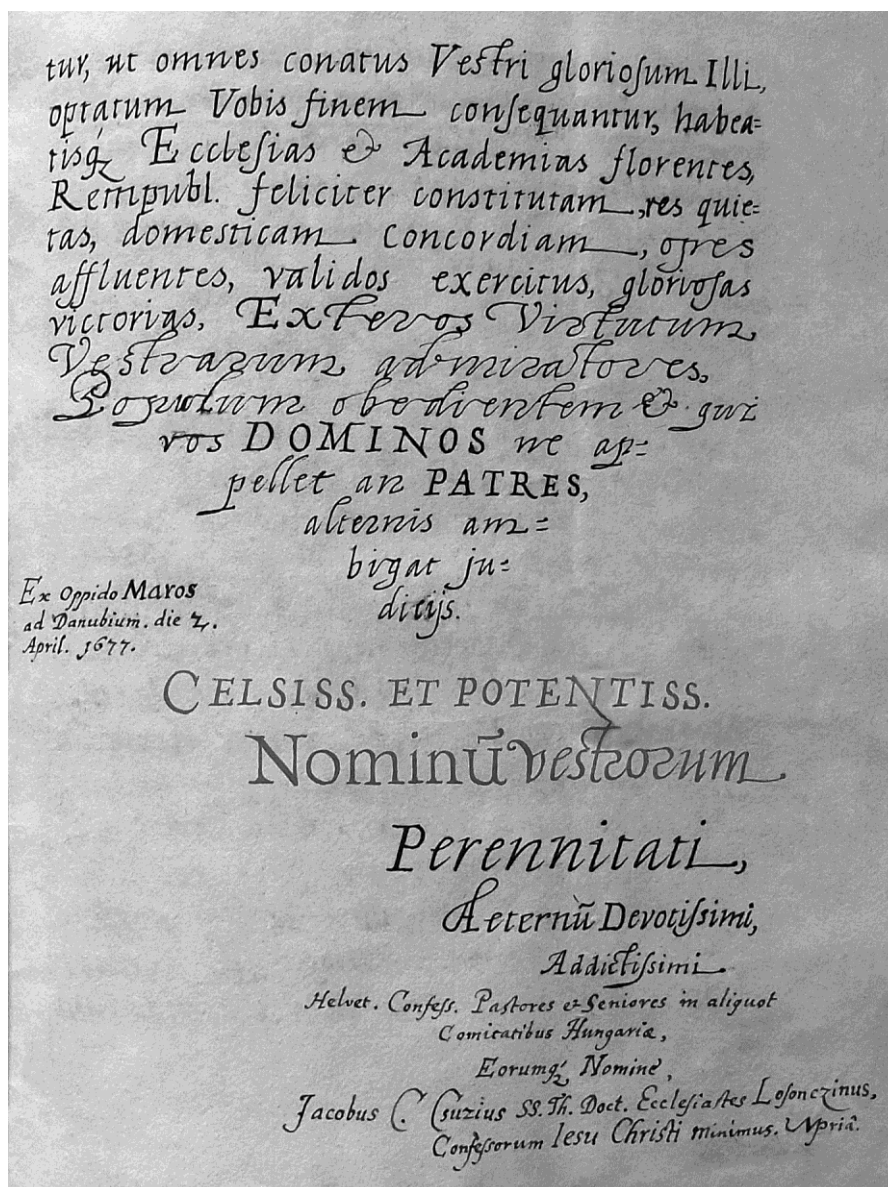 tur, ut omnes conatus Veſtri glorioſum Illi,
optatum Vobis finem conſequantur, habea=
tisq́ꝫ Eccleſias & Academias florentes,
Rempubl. feliciter conſtitutam, res quie=
tas, domesticam Concordiam, opes
affluentes, validos exercitus, glorioſas
victorias, Exteros Virtutum
Veſtrarum admiratores,
Populum obedientem & qui
vos DOMINOS ne ap=
pellet an PATRES,
alternis am=
bigat ju=
dicijs.
Ex Oppido Maros
ad Danubium. die 2.
April. 1677.
CELSISS. ET POTENTISS.
Nominū veſtrorum
Perennitati,
Æternū Devotiſſimi,
Addictiſſimi.
Helvet. Confeſſ. Paſtores & Seniores in aliquot
Comitatibus Hungariæ,
Eorumq́ꝫ Nomine,
Jacobus C. Csuzius SS. Th. Doct. Eccleſiaſtes Loſonczinus,
Confeſſorum Iesu Chriſti minimus. Mpriâ.